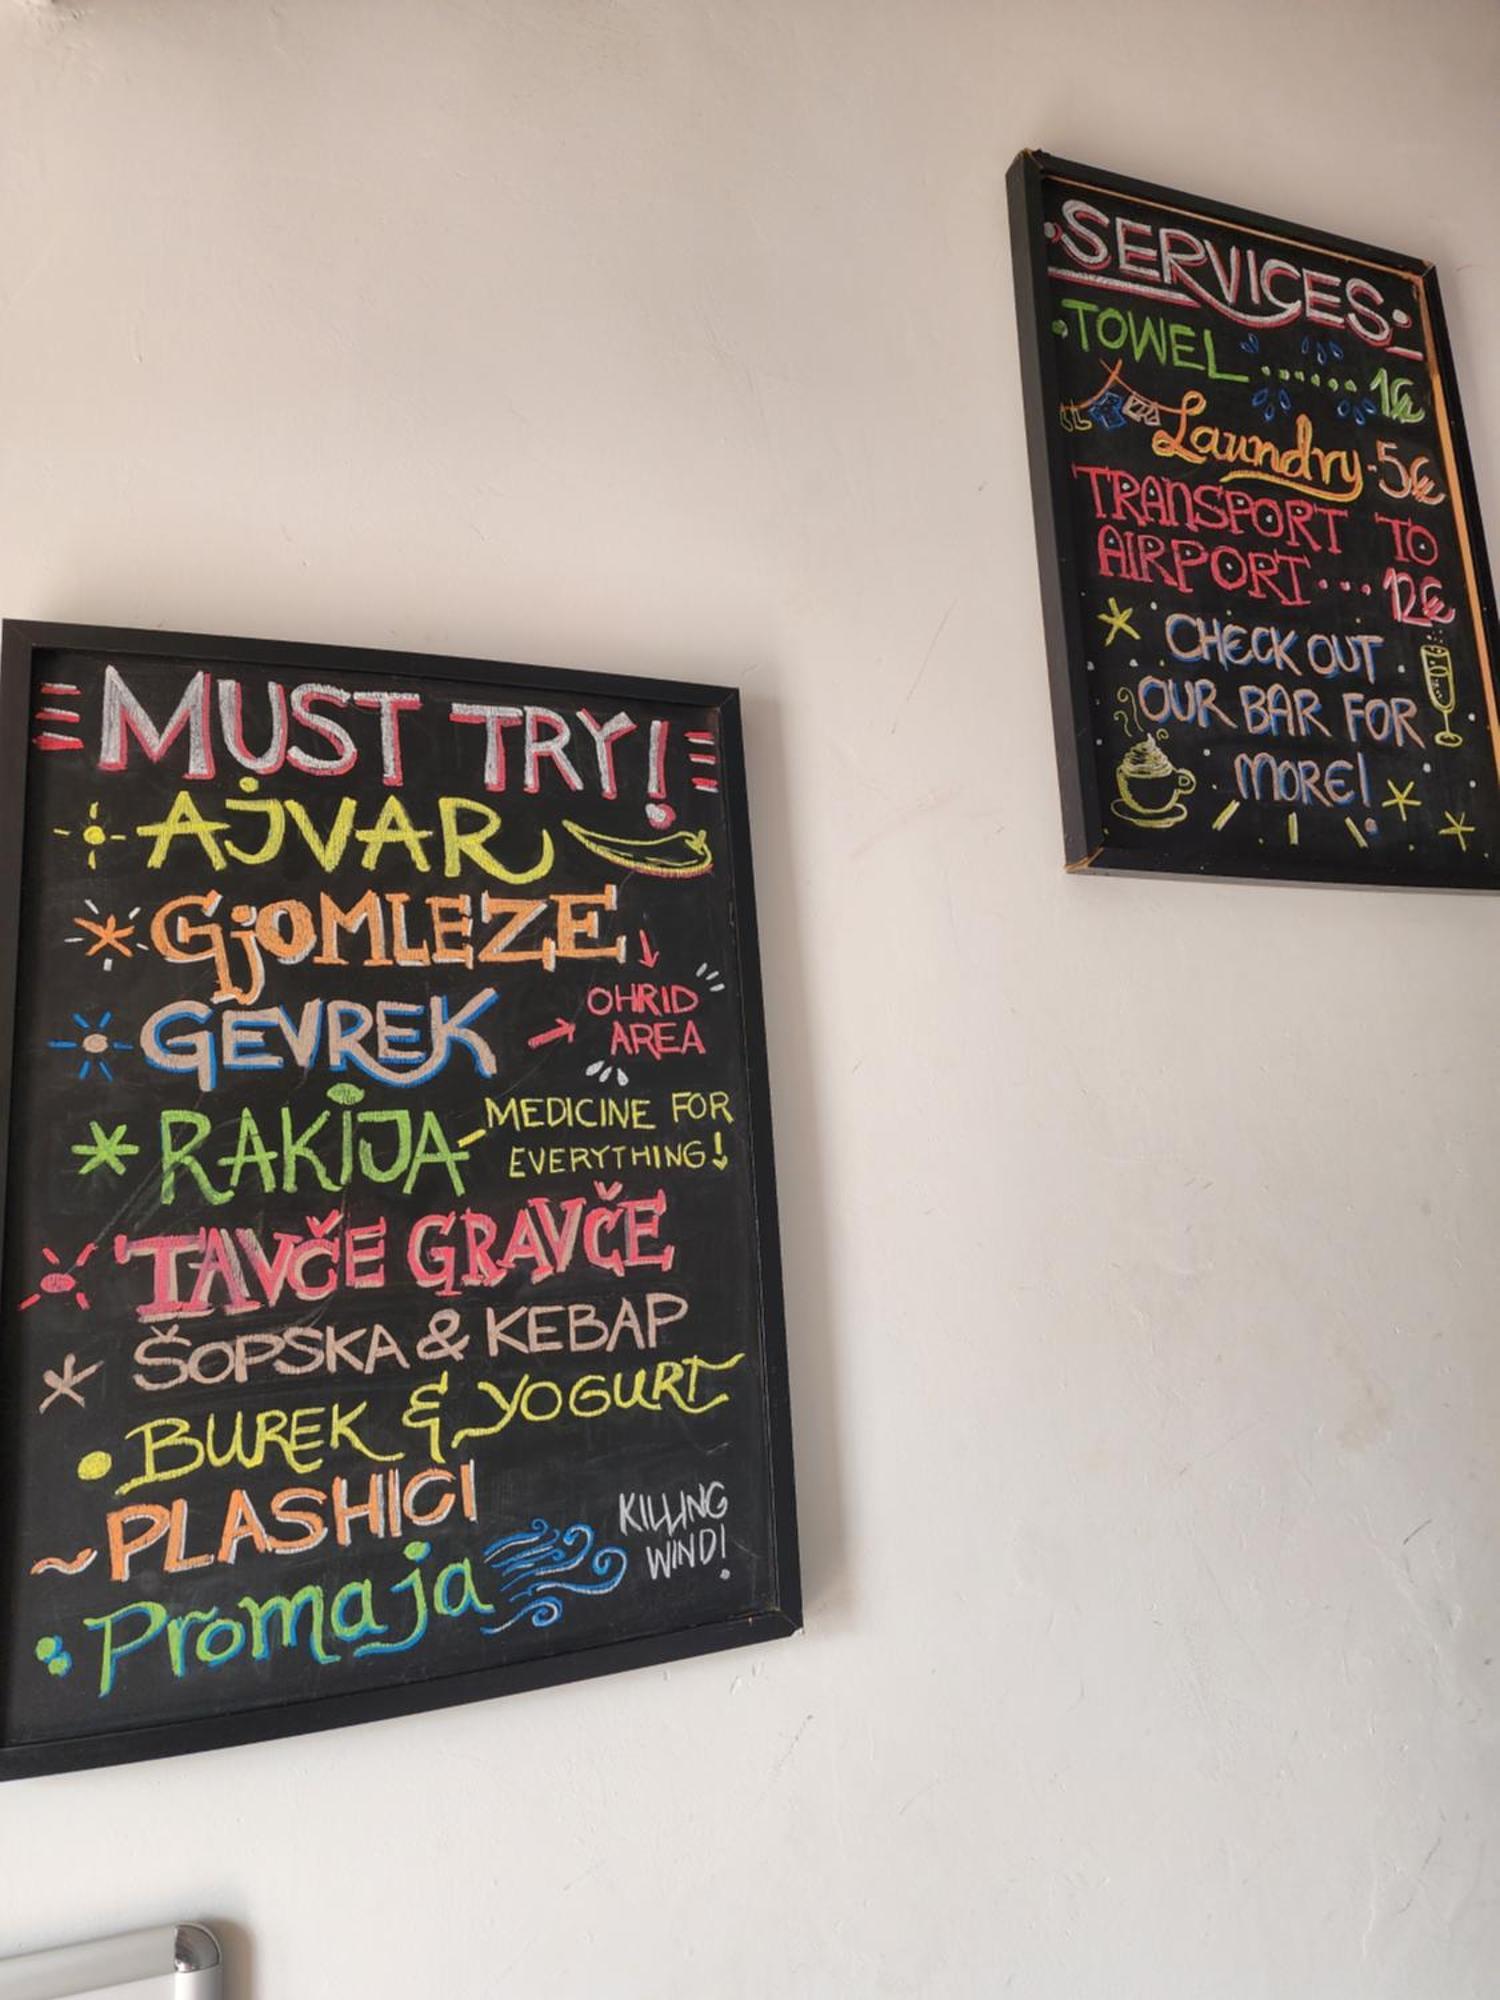 MUST TRY!
AJVAR
GjOMLEZE
GEVREK
OHRID
AREA
RAKIJA - MEDICINE FOR
EVERYTHING!
TAVČE GRAVČE
ŠOPSKA & KEBAP
BUREK & YOGURT
~PLASHICI
Promaja
KILLING
WIND!
SERVICES
TOWEL ...... 1€
Laundry - 5€
TRANSPORT TO
AIRPORT ... 12€
CHECK OUT
OUR BAR FOR
MORE!